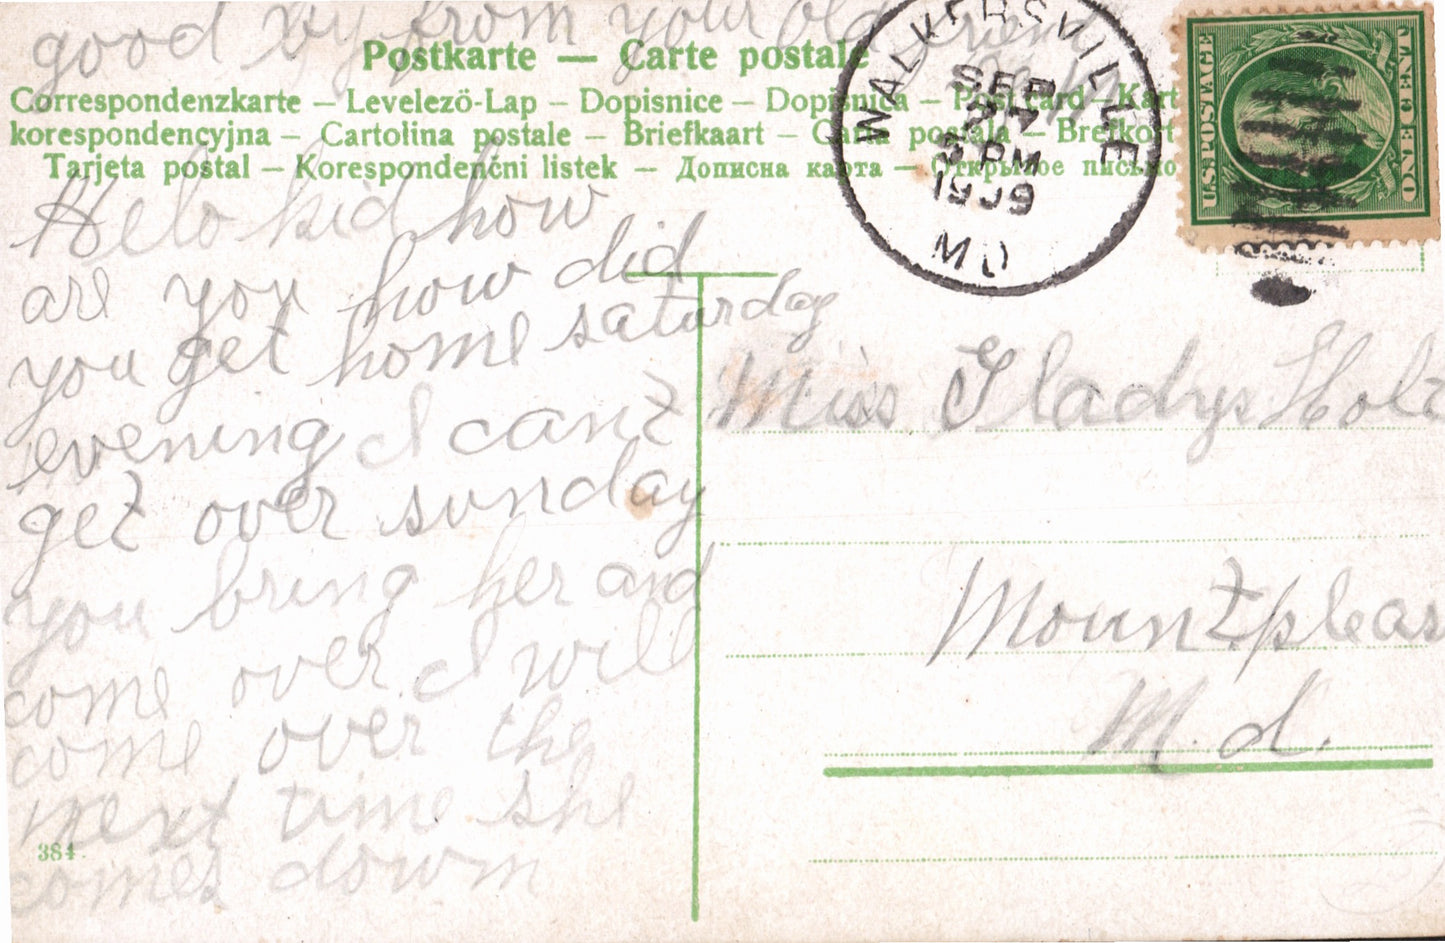 good by from your old friend
Postkarte — Carte postale
Correspondenzkarte – Levelező-Lap – Dopisnice – Dopisnica – Post card – Kart
korespondencyjna – Cartolina postale – Briefkaart – Carta postala – Brefkort
Tarjeta postal – Korespondenčni listek – Дописна карта – Открытое письмо
WALKERSVILLE
SEP
27
3 PM
1909
MD
U.S. POSTAGE
ONE CENT
Helo kid how
are you how did
you get home saturday
evening I cant
get over sunday
you bring her and
come over I will
come over the
next time she
comes down
384
Miss Gladys Holt
Mountpleas
Md.